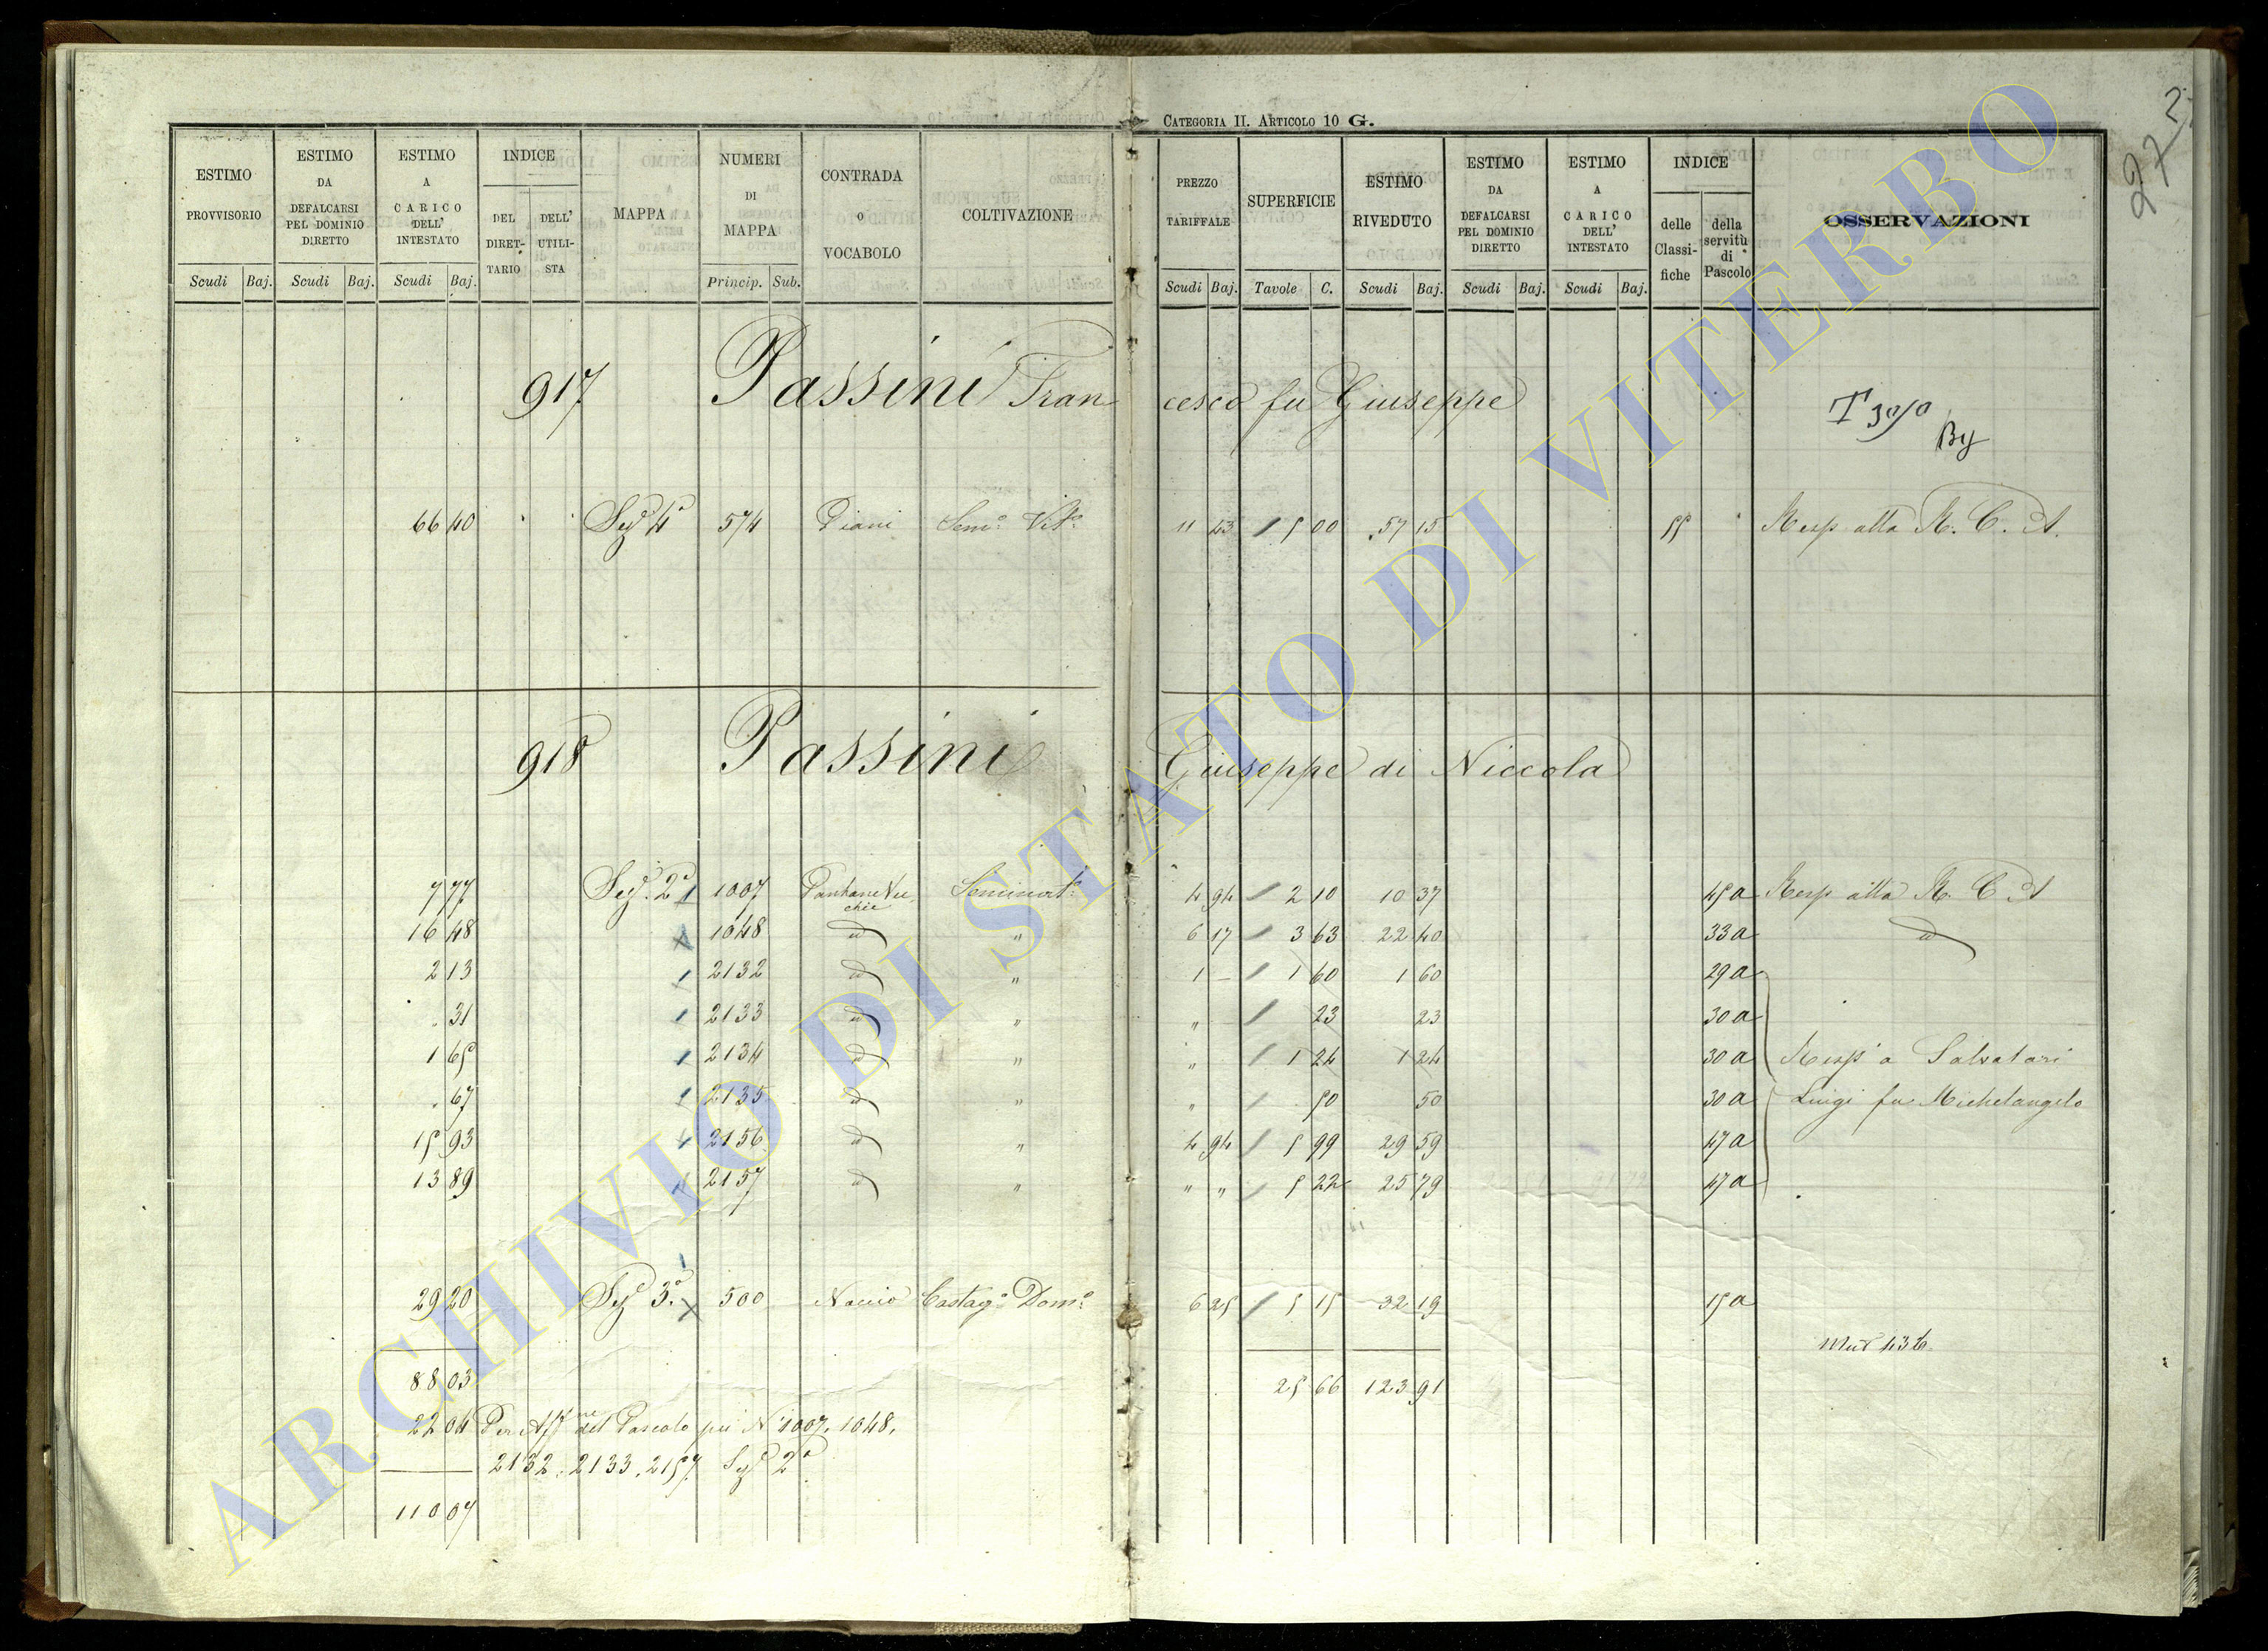 CATEGORIA II. ARTICOLO 10 G.
272
ESTIMO PROVVISORIO Scudi Baj.
ESTIMO DA DEFALCARSI PEL DOMINIO DIRETTO Scudi Baj.
ESTIMO A CARICO DELL' INTESTATO Scudi Baj.
INDICE DEL DIRETTARIO DELL' UTILISTA
MAPPA
NUMERI DI MAPPA Princip. Sub.
CONTRADA o VOCABOLO
COLTIVAZIONE
PREZZO TARIFFALE Scudi Baj.
SUPERFICIE Tavole C.
ESTIMO RIVEDUTO Scudi Baj.
ESTIMO DA DEFALCARSI PEL DOMINIO DIRETTO Scudi Baj.
ESTIMO A CARICO DELL' INTESTATO Scudi Baj.
INDICE delle Classifiche della servitù di Pascolo
OSSERVAZIONI
917 Passini Francesco fu Giuseppe
66 40 Sez.e 4a 574 Piani Sem.o Vit.o 11 43 5 00 57 15 55 Resp alla R. C. A.
918 Passini Giuseppe di Niccola
7 77 Sez.e 2a 1 1007 Pantane Vecchie Seminat.o 4 94 2 10 10 37 45a Resp alla R. C. A
16 48 1048 id " 6 17 3 63 22 40 33a id
2 13 1 2132 id " 1 — 1 60 1 60 29a
. 31 1 2133 id " " 23 23 30a
1 65 1 2134 id " " 1 24 1 24 30a Resp a Salvatori
. 67 1 2135 id " " 50 50 30a Luigi fu Michelangelo
15 93 2156 id " 4 94 5 99 29 59 47a
13 89 2157 id " " " 5 22 25 79 47a
29 20 Sez.e 3a 500 Noccio Castag.o Dom.o 6 25 5 15 32 19 15a
88 03 25 66 123 91
22 04 Per Aff.ne del Pascolo pei N.i 1007, 1048,
2132, 2133, 2157 Sez.e 2a
110 07
ARCHIVIO DI STATO DI VITERBO